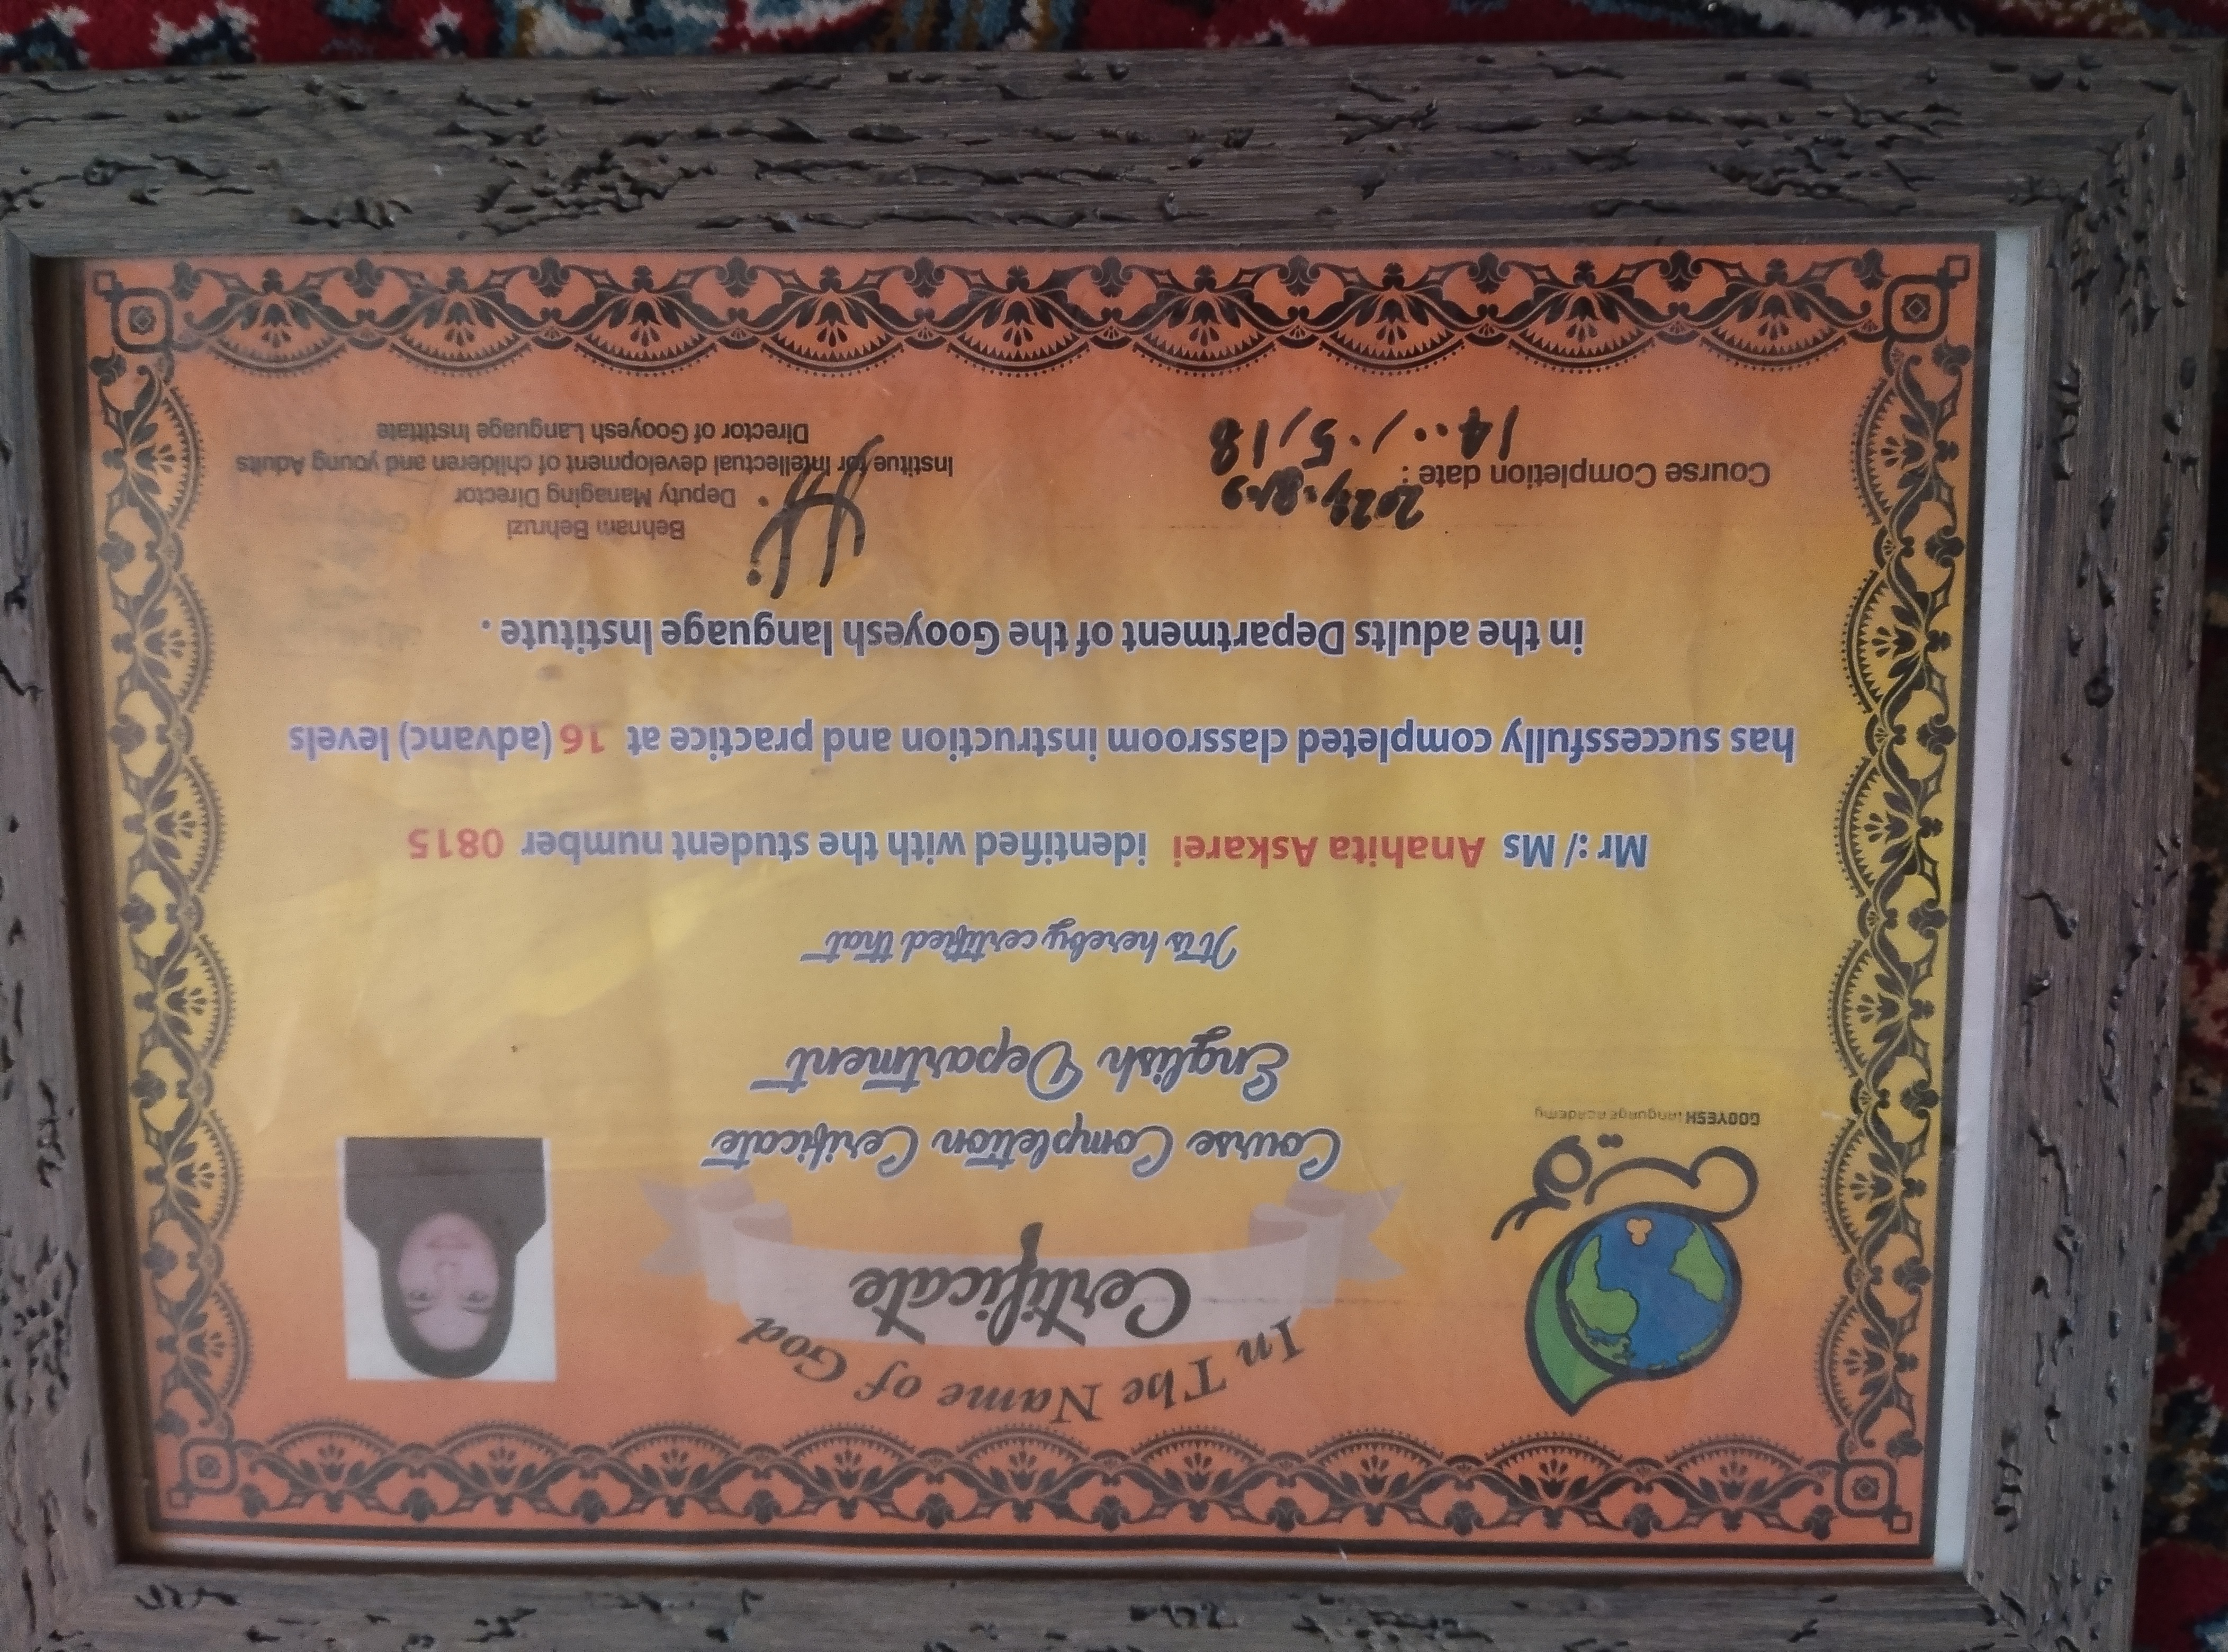 In The Name of God
Certificate
Course Completion Cerificate
English Department
GOOYESH language academy
It is hereby certified that
Mr :/ Ms Anahita Askarei identified with the student number 0815
has successfully completed classroom instruction and practice at 16 (advanc) levels
in the adults Department of the Gooyesh language Institute .
Course Completion date :
14../.5/18
Behnam Behruzi
Deputy Managing Director
Institue for Intellectual development of childeren and young Adults
Director of Gooyesh Language Instittate